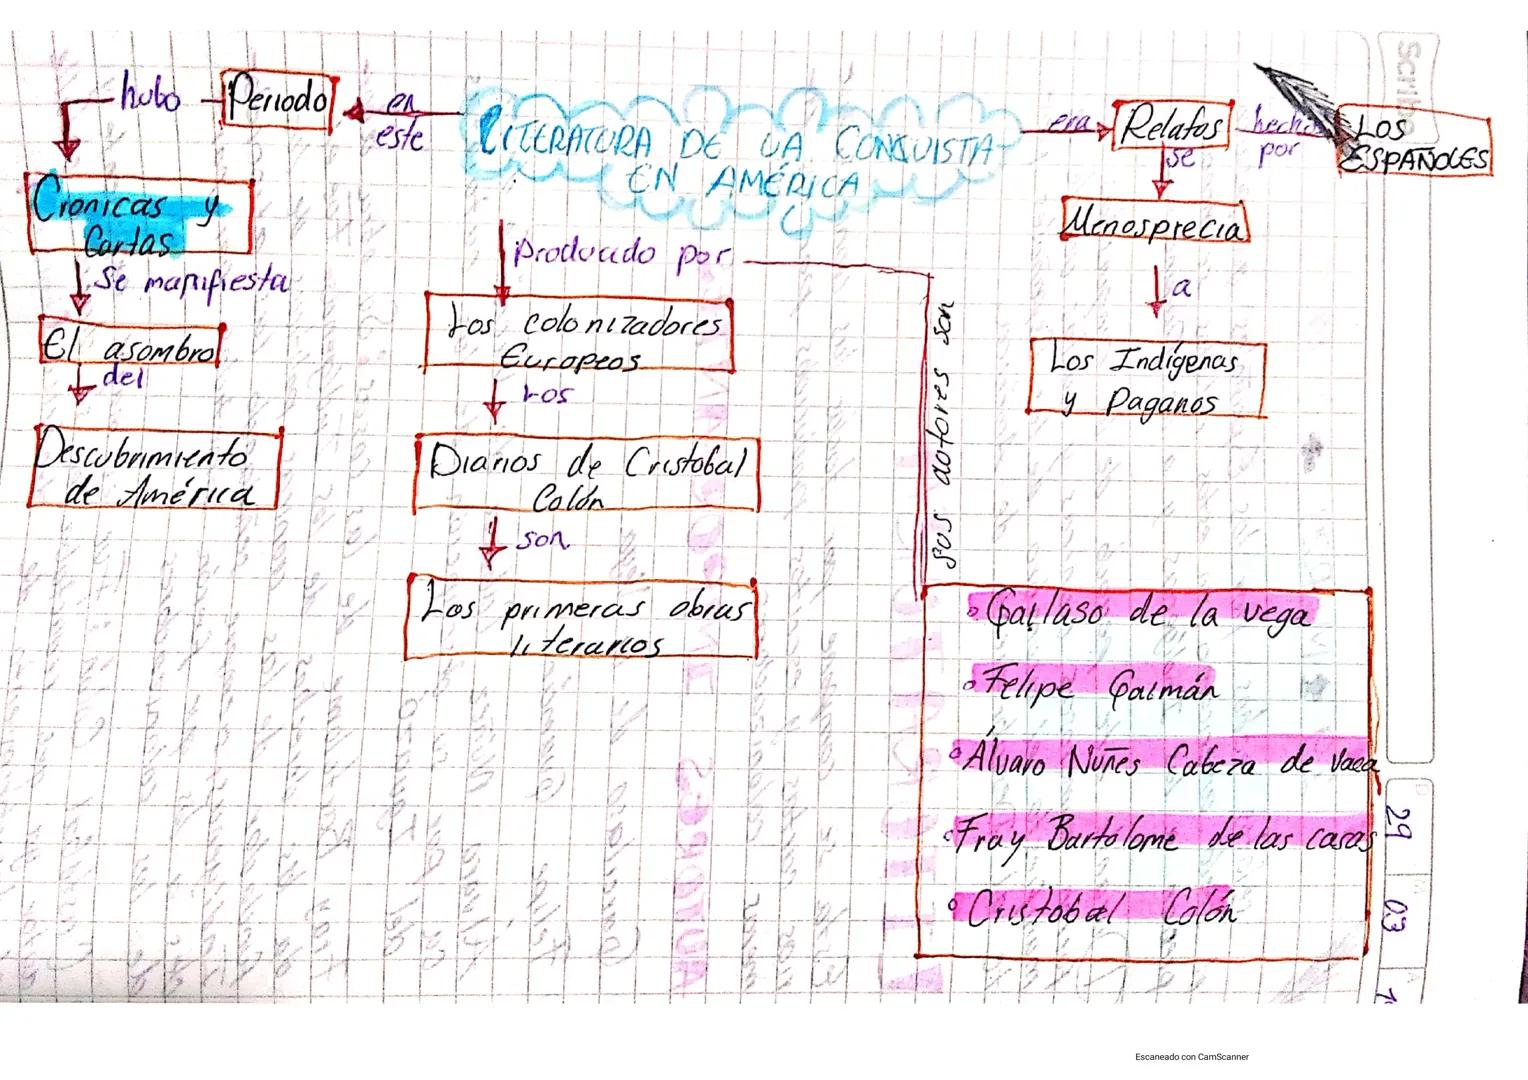 LITERATURA DE LA CONQUISTA
EN AMÉRICA
en
este
Periodo
hubo
Cronicas y
Cartas
Se manifiesta
El asombro
del
Descubrimiento
de América
Producido por
Los colonizadores
Europeos
Los
Diarios de Cristobal
Colón
son
Las primeras obras
literarias
era
Relatos
hecho
por
LOS
ESPAÑOLES
se
Menosprecia
a
Los Indígenas
y Paganos
sus autores son
Felipe
Álvaro Nuñes Cabeza de vaca
Fray Bartolome de las casas
Cristobal Colón
de la vega
Scrib
29 03
Escaneado con CamScanner